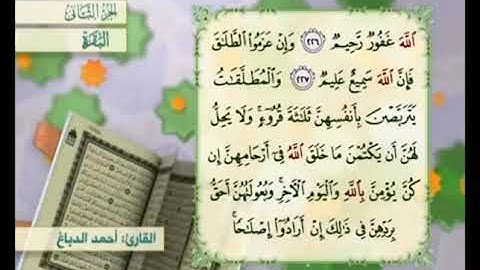 الجزء الثاني
البقرة
ٱللَّهَ غَفُورٌ رَّحِيمٌ ٢٢٦ وَإِنْ عَزَمُوا۟ ٱلطَّلَٰقَ
فَإِنَّ ٱللَّهَ سَمِيعٌ عَلِيمٌ ٢٢٧ وَٱلْمُطَلَّقَٰتُ
يَتَرَبَّصْنَ بِأَنفُسِهِنَّ ثَلَٰثَةَ قُرُوٓءٍ ۚ وَلَا يَحِلُّ
لَهُنَّ أَن يَكْتُمْنَ مَا خَلَقَ ٱللَّهُ فِىٓ أَرْحَامِهِنَّ إِن
كُنَّ يُؤْمِنَّ بِٱللَّهِ وَٱلْيَوْمِ ٱلْءَاخِرِ ۚ وَبُعُولَتُهُنَّ أَحَقُّ
بِرَدِّهِنَّ فِى ذَٰلِكَ إِنْ أَرَادُوٓا۟ إِصْلَٰحًا ۚ
القارئ: أحمد الدباغ